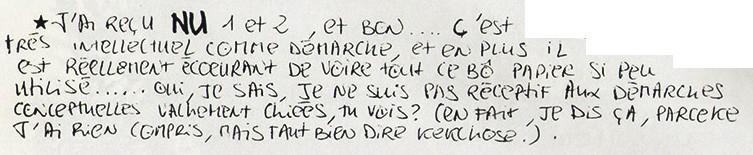 ★ J'AI REÇU NU 1 et 2, et BON.... Ç'EST
TRÈS INTELLECTUEL COMME DÉMARCHE, et EN PLUS IL
est RÉELLEMENT ÉCOEURANT DE VOIRE TOUT CE BÔ PAPIER SI PEU
UTILISÉ...... OUI, JE SAIS, JE NE SUIS PAS RÉCEPTIF AUX DÉMARCHES
CONCEPTUELLES VACHEMENT CHIÉES, TU VOIS? (EN FAIT, JE DIS ÇA, PARCEKE
J'AI RIEN COMPRIS, MAIS FAUT BIEN DIRE KEKCHOSE.).